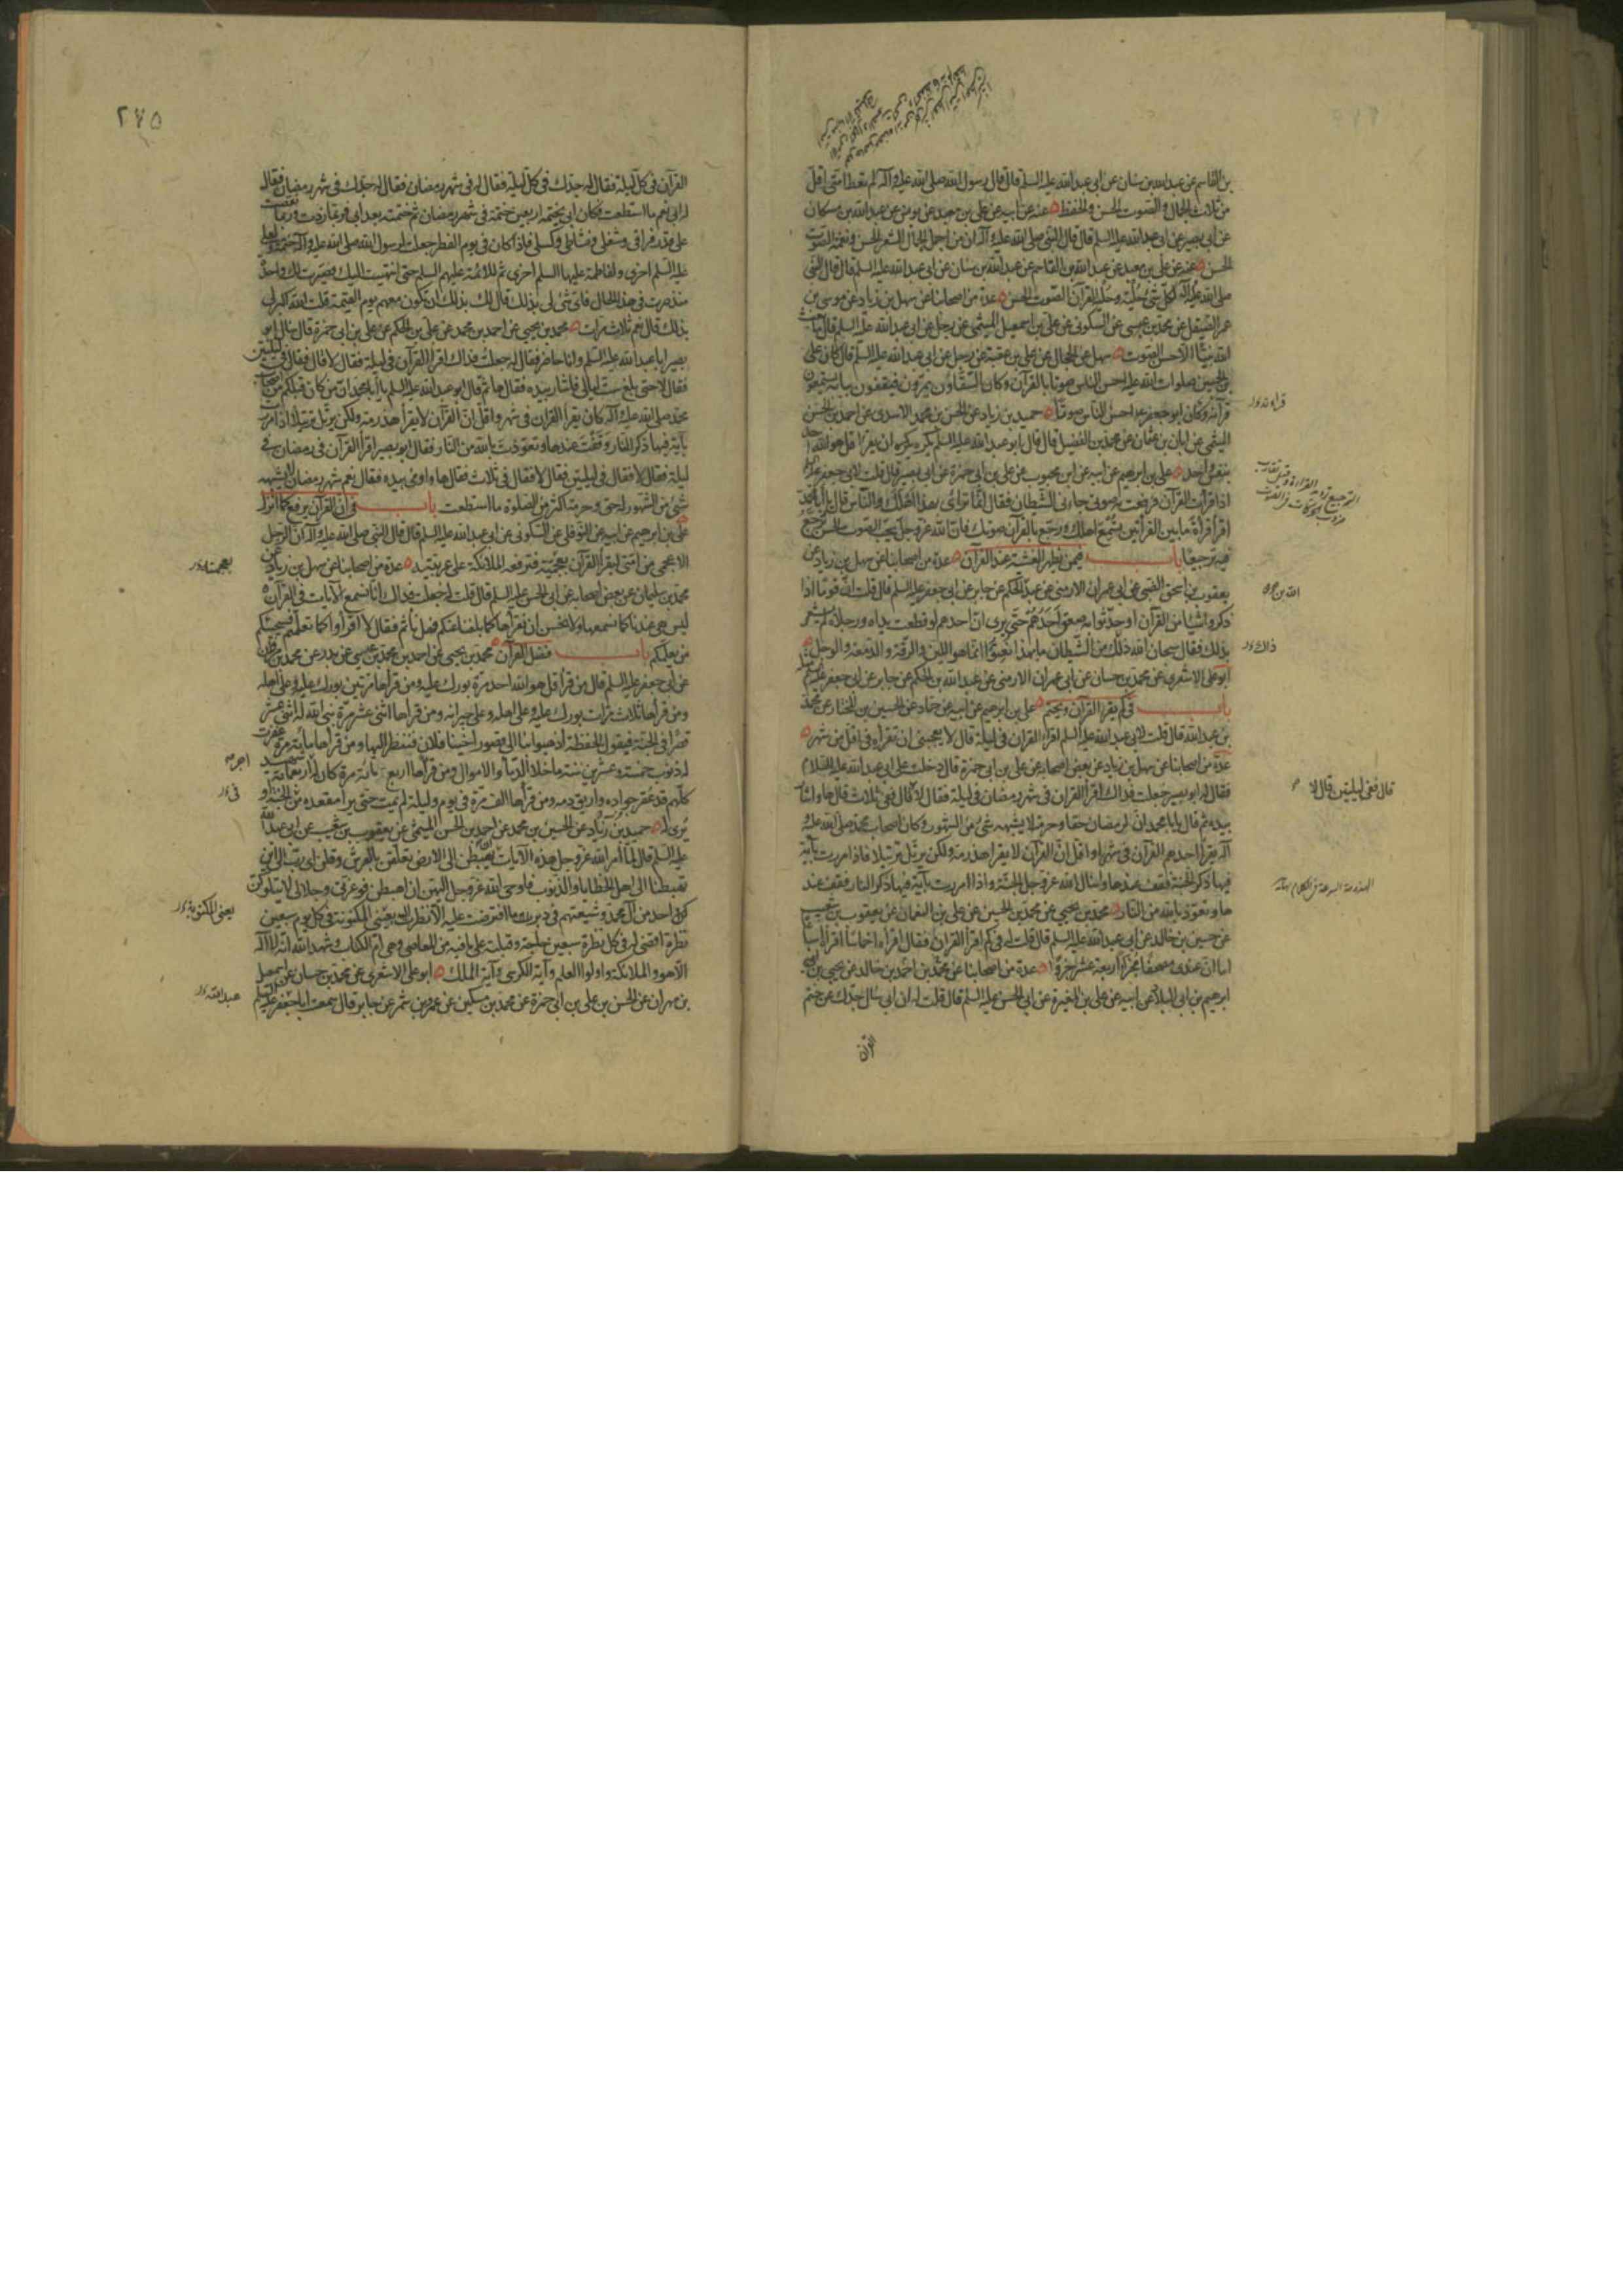 بن القاسم عن عبدالله بن سنان عن ابى عبدالله عليه السلم قال قال رسول الله صلى الله عليه وآله لم يعط امتى اقل
من ثلاث الجمال والصوت الحسن والحفظ عنه عن ابيه عن على بن معبد عن يونس عن عبدالله بن مسكان
عن ابى بصير عن ابى عبدالله عليه السلم قال قال النبى صلى الله عليه وآله ان من اجمل الجمال الشعر الحسن ونغمة الصوت
الحسن عنه عن على بن معبد عن عبدالله بن القاسم عن عبدالله بن سنان عن ابى عبدالله عليه السلم قال قال النبى
صلى الله عليه وآله لكل شئ حلية وحلية القرآن الصوت الحسن عدة من اصحابنا عن سهل بن زياد عن موسى بن
عمر الصيقل عن محمد بن عيسى عن السكونى عن على بن اسمعيل الميثمى عن رجل عن ابى عبدالله عليه السلم قال ما بعث
الله نبيا الا حسن الصوت سهل عن الحجال عن على بن عقبة عن رجل عن ابى عبدالله عليه السلم قال كان على
بن الحسين صلوات الله عليه احسن الناس صوتا بالقرآن وكان السقاؤن يمرون فيقفون ببابه يستمعون
قرآنه وكان ابو جعفر احسن الناس صوتا حميد بن زياد عن الحسن بن محمد الاسدى عن احمد بن الحسن
الميثمى عن ابان بن عثمان عن محمد بن الفضيل قال قال ابو عبدالله عليه السلم يكره ان يقرا قل هو الله احد
بنفس واحد على بن ابرهيم عن ابيه عن ابن محبوب عن على بن ابى حمزة عن ابى بصير قال قلت لابى جعفر
اذا قرأت القرآن فرفعت به صوتى جاءنى الشيطان فقال انما ترائى بهذا اهلك والناس قال يا ابا محمد
اقرأ قراءة ما بين القرائتين تسمع اهلك ورجع بالقرآن صوتك فان الله عز وجل يحب الصوت الحسن يرجع
فيه ترجيعا باب فيمن يظهر الغشية عند القرآن عدة من اصحابنا عن سهل بن زياد عن
يعقوب بن اسحق الضبى عن ابى عمران الارمنى عن عبد الحكم عن جابر عن ابى جعفر عليه السلم قال قلت ان قوما اذا
ذكروا شيئا من القرآن او حدثوا به صعق احدهم حتى يرى ان احدهم لو قطعت يداه ورجلاه لم يشعر
بذلك فقال سبحان الله ذلك من الشيطان ما بهذا نعتوا انما هو اللين والرقة والدمعة والوجل
ابو على الاشعرى عن محمد بن حسان عن ابى عمران الارمنى عن عبدالله بن الحكم عن جابر عن ابى جعفر عليه السلم مثله
باب فى كم يقرا القرآن ويختم على بن ابرهيم عن ابيه عن حماد عن الحسين بن المختار عن محمد
بن عبدالله قال قلت لابى عبدالله عليه السلم اقرا القران فى ليلة قال لا يعجبنى ان تقراه فى اقل من شهر
عدة من اصحابنا عن سهل بن زياد عن بعض اصحابه عن على بن ابى حمزة قال دخلت على ابى عبدالله عليه السلام
فقال له ابو بصير جعلت فداك اقرأ القران فى شهر رمضان فى ليلة فقال لا قال ففى ثلاث قال ها واشار
بيده ثم قال يا ابا محمد ان لرمضان حقا وحرمة لا يشبهه شئ من الشهور وكان اصحاب محمد صلى الله عليه و
آله يقرأ احدهم القرآن فى شهر او اقل ان القرآن لا يقرا هذرمة ولكن يرتل ترتيلا فاذا مررت بآية
فيها ذكر الجنة فقف عندها واسئل الله عز وجل الجنة واذا مررت بآية فيها ذكر النار فقف عند
ها وتعوذ بالله من النار محمد بن يحيى عن محمد بن الحسين عن على بن النعمان عن يعقوب بن شعيب
عن حسين بن خالد عن ابى عبدالله عليه السلم قال قلت له فى كم اقرأ القران فقال اقراه اخماسا اقراه اسباعا
اما ان عندى مصحفا مجزى اربعة عشر جزوا عدة من اصحابنا عن محمد بن احمد بن خالد عن يحيى بن
ابرهيم بن ابى البلاد عن ابيه عن على بن المغيرة عن ابى الحسن عليه السلم قال قلت له ان ابى سال جدك عن ختم
القرآن
الله بن
ذاك
قال ففى ليلتين قال لا
٢٧٥
القرآن فى كل ليلة فقال له جدك فى كل ليلة فقال له فى شهر رمضان فقال له جدك فى شهر رمضان فقال
له ابى نعم ما استطعت فكان ابى يختمه اربعين ختمة فى شهر رمضان ثم ختمته بعد ابى فربما زدت وربما نقصت
على قدر فراغى وشغلى ونشاطى وكسلى فاذا كان فى يوم الفطر جعلت لرسول الله صلى الله عليه وآله ختمة ولعلى
عليه السلم اخرى ولفاطمة عليها السلم اخرى ثم للائمة عليهم السلم حتى انتهيت اليك فصيرت لك واحدة
منذ صرت فى هذا الحال فاى شئ لى بذلك قال لك بذلك ان تكون معهم يوم القيمة قلت الله اكبر لى
بذلك قال نعم ثلاث مرات محمد بن يحيى عن احمد بن محمد عن على بن الحكم عن على بن ابى حمزة قال سال ابو
بصير ابا عبدالله عليه السلم وانا حاضر فقال له جعلت فداك اقرا القرآن فى ليلة فقال لا قال فقال فى ليلتين
فقال لا حتى بلغ ست ليالى فاشار بيده فقال ها ثم قال ابو عبدالله عليه السلم يا ابا محمد ان من كان قبلكم من اصحاب
محمد صلى الله عليه وآله كان يقرأ القران فى شهر واقل ان القرآن لا يقرأ هذرمة ولكن يرتل ترتيلا اذا مررت
بآية فيها ذكر النار وقفت عندها وتعوذت بالله من النار فقال ابو بصير اقرا القرآن فى رمضان فى
ليلة فقال لا فقال فى ليلتين فقال لا فقال فى ثلاث فقال ها واومى بيده فقال نعم شهر رمضان لا يشبهه
شئ من الشهور له حق وحرمة اكثر من الصلوة ما استطعت باب فى ان القرآن يرفع كما انزل
على بن ابرهيم عن ابيه عن النوفلى عن السكونى عن ابى عبدالله عليه السلم قال قال النبى صلى الله عليه وآله ان الرجل
الاعجمى من امتى ليقرأ القرآن بعجمية فترفعه الملائكة على عربيته عدة من اصحابنا عن سهل بن زياد عن
محمد بن سليمان عن بعض اصحابه عن ابى الحسن عليه السلم قال قلت له جعلت فداك انا نسمع الايات فى القرآن
ليس هى عندنا كما نسمعها ولا نحسن ان نقرأها كما بلغنا عنكم فهل نأثم فقال لا اقرأوا كما تعلمتم فسيجيئكم
من يعلمكم باب فضل القرآن محمد بن يحيى عن احمد بن محمد بن عيسى عن بدر عن محمد بن مروان
عن ابى جعفر عليه السلم قال من قرأ قل هو الله احد مرة بورك عليه ومن قرأها مرتين بورك عليه وعلى اهله
ومن قرأها ثلاث مرات بورك عليه وعلى اهله وعلى جيرانه ومن قرأها اثنى عشر مرة بنى الله له اثنى عشر
قصرا فى الجنة فيقول الحفظة اذهبوا بنا الى قصور اخينا فلان فننظر اليها ومن قرأها مأية مرة غفرت
له ذنوب خمسة وعشرين سنة ما خلا الدماء والاموال ومن قرأها اربع مائة مرة كان له اربعمائة شهيد
كلهم قد عقر جواده واريق دمه ومن قرأها الف مرة فى يوم وليلة لم يمت حتى يرا مقعده من الجنة او
يرى له حميد بن زياد عن الحسين بن محمد عن احمد بن الحسن الميثمى عن يعقوب بن شعيب عن ابى عبدالله
عليه السلم قال لما أمر الله عز وجل هذه الآيات ان يهبطن الى الارض تعلقن بالعرش وقلن اى رب الى اين
تهبطنا الى اهل الخطايا والذنوب فاوحى الله عز وجل اليهن ان اهبطن فوعزتى وجلالى لا يتلوكن
احد من آل محمد وشيعتهم فى دبر ما افترضت عليه الا نظرت اليه بعينى المكنونة فى كل يوم سبعين
نظرة اقضى له فى كل نظرة سبعين حاجة وقبلته على ما فيه من المعاصى وهى ام الكتاب وشهد الله انه لا اله
الا هو والملائكة واولوا العلم وآية الكرسى وآية الملك ابو على الاشعرى عن محمد بن حسان عن اسمعيل
بن مهران عن الحسن بن على بن ابى حمزة عن محمد بن مسكين عن عمرو بن شمر عن جابر قال سمعت ابا جعفر عليه السلم
اجر
عبدالله